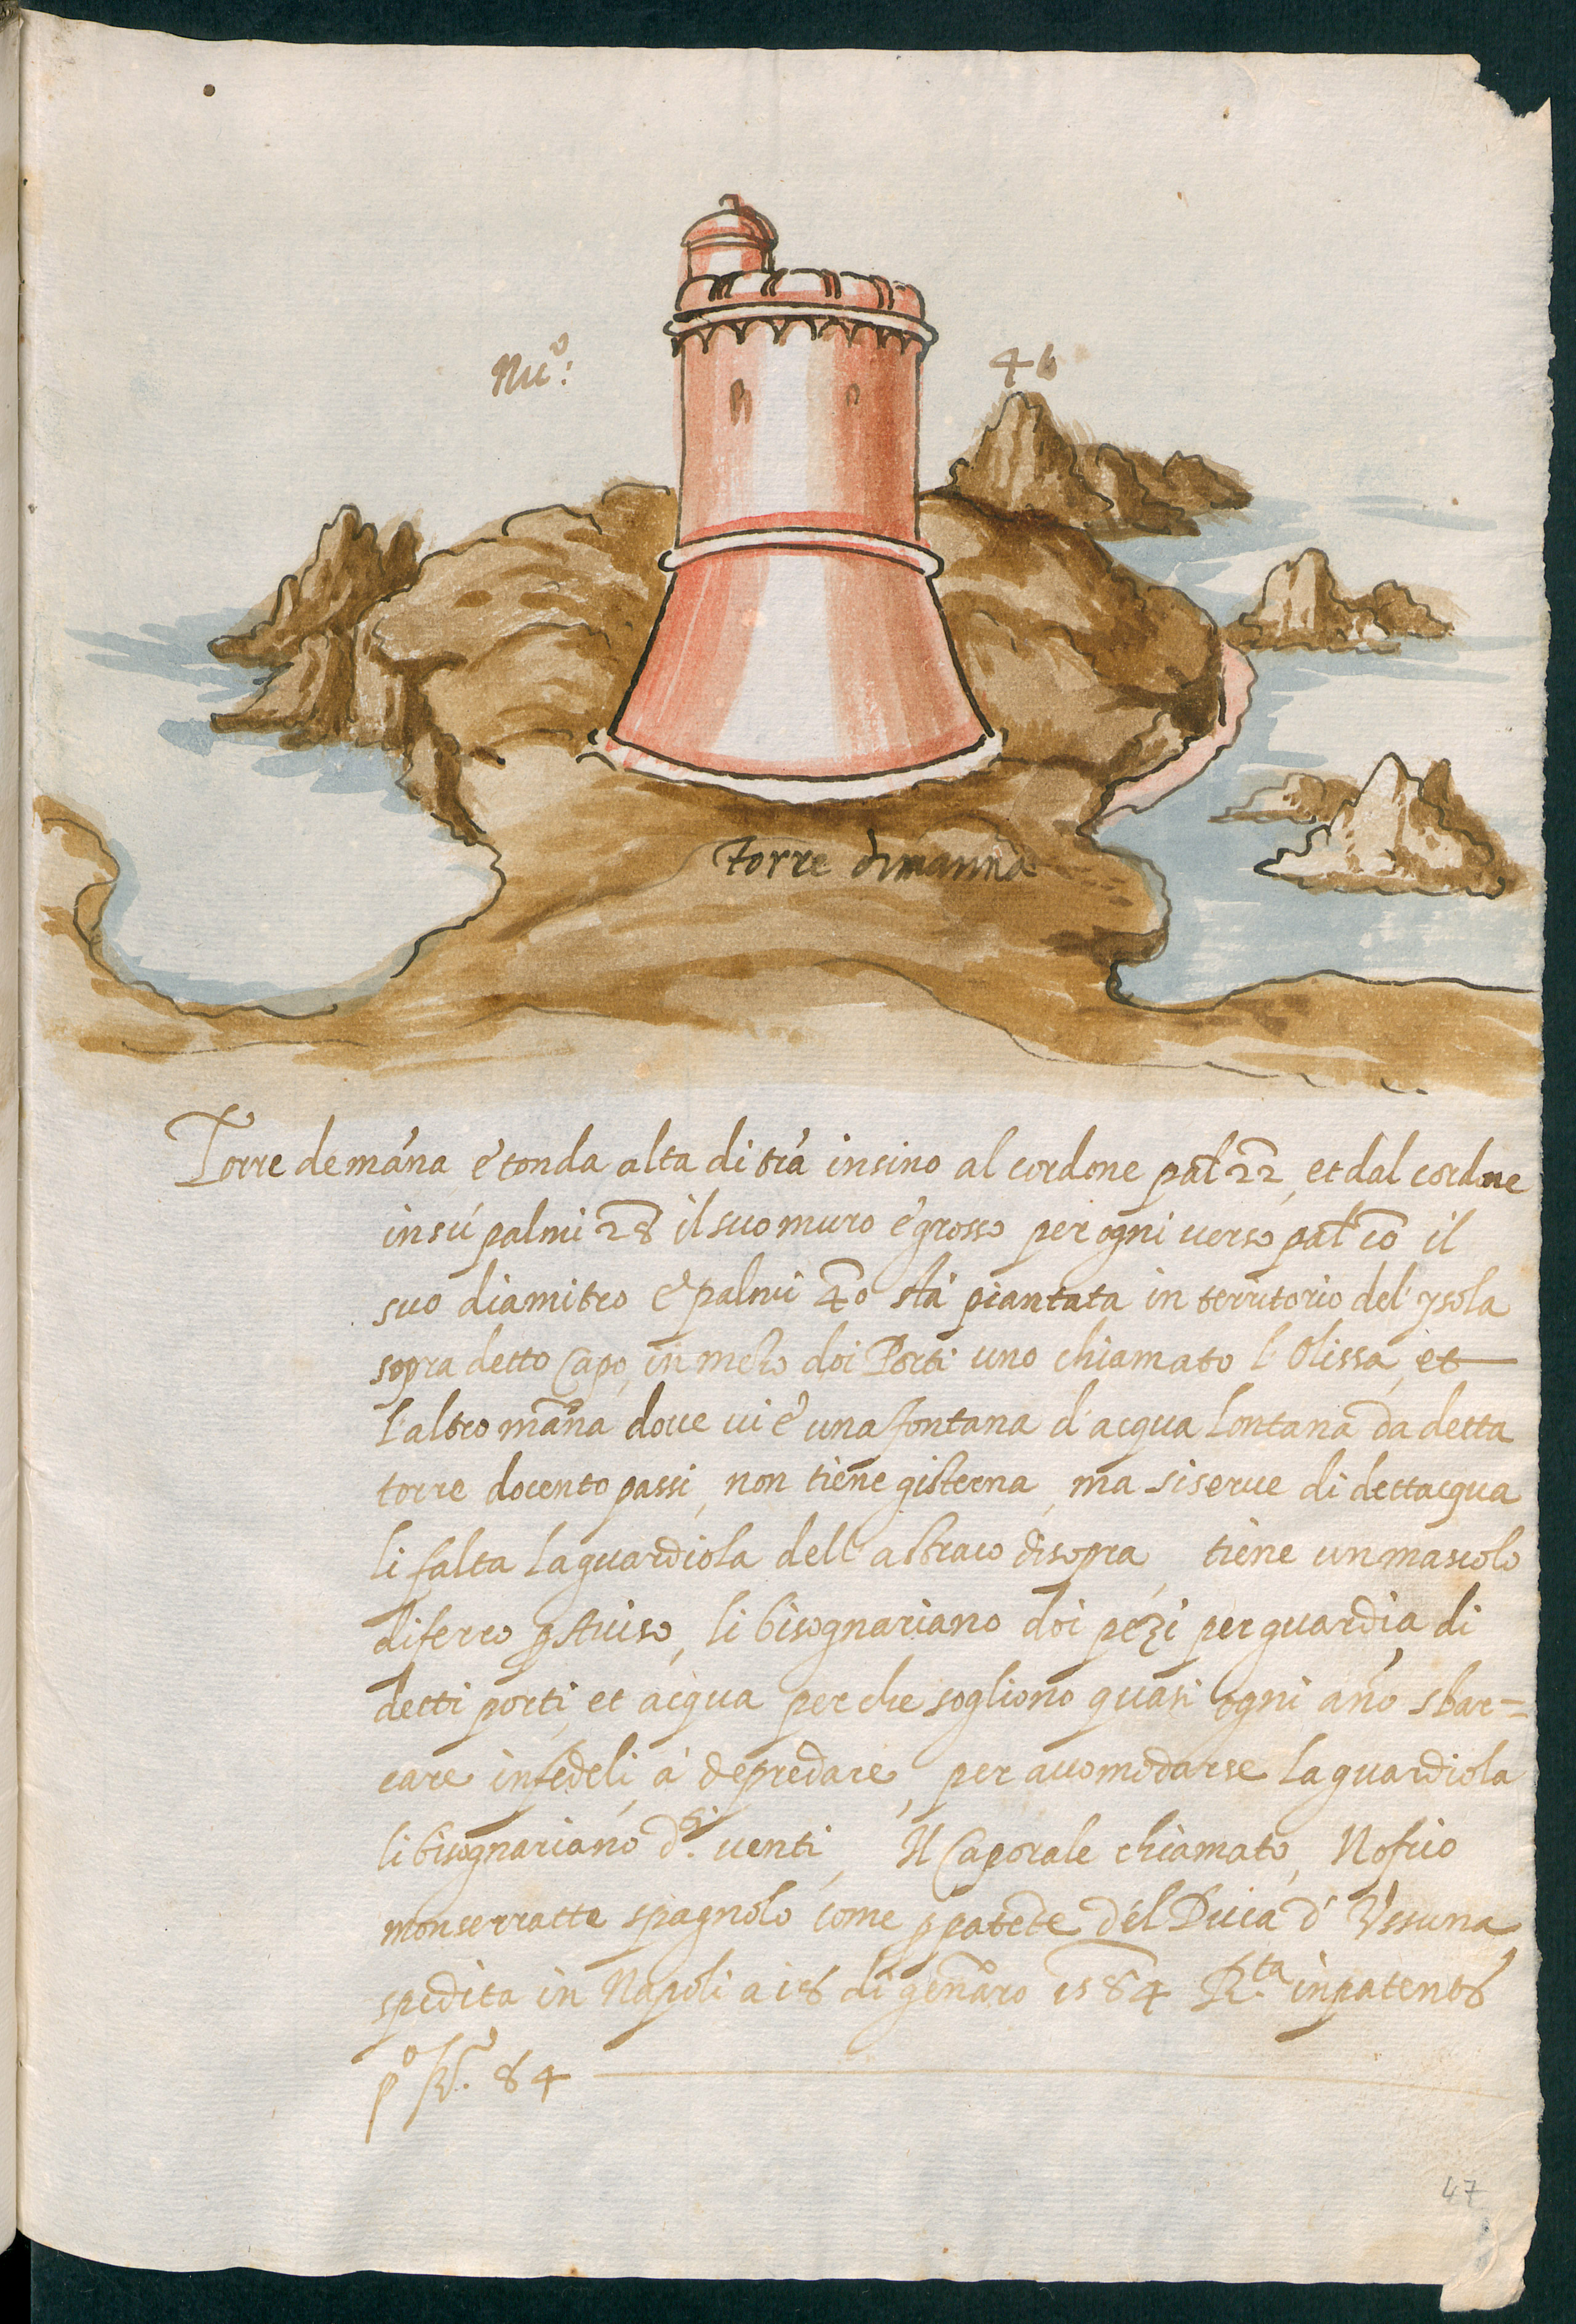 Nu.º:
46
torre dimanna
Torre demãna è tonda alta di trã insino al cordone pal.ᵐ 22, et dal cordone
insú palmi 28 il suo muro è grosso per ogni verso pal.ᵐ 10 il
suo diamitro è palmi 40 stà piantata in territorio del'ysola
sopra detto Capo, in mezo doi Porti uno chiamato l'Olissa, et
l'altro mãna dove vi è una fontana d'acqua lontana da detta
torre docento passi, non tiene gisterna, ma si serve di dettacqua
li falta la guardiola dell'astraco disopra, tiene un mascolo
di ferro p. Aviso, li bisognariano doi pézi per guardia di
detti porti, et acqua perche sogliono quasi ogni anño sbar=
care infedeli, à depredare, per accomodarse la guardiola
li bisognariano d.ⁱ venti, Il Caporale chiamato, Nofrio
monserratte spagnolo come p patẽte del Duca d'Ussuna
spedita in Napoli a 18 di genãro 1584 R.ᵗᵃ in patentõ
pº 84
47